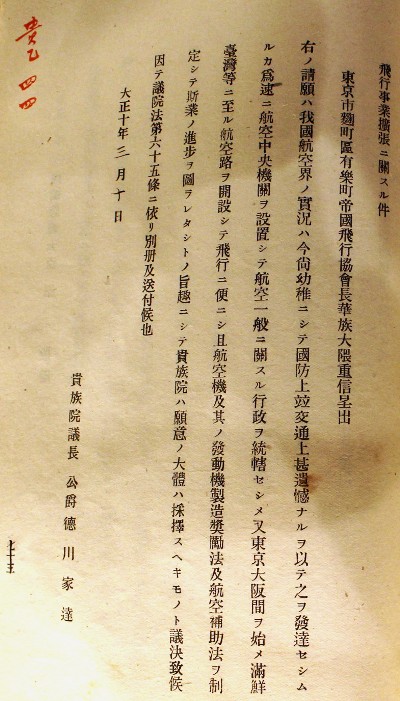 飛行事業擴張ニ關スル件
東京市麴町區有樂町帝國飛行協會長華族大隈重信呈出
右ノ請願ハ我國航空界ノ實況ハ今尙幼稚ニシテ國防上竝交通上甚遺憾ナルヲ以テ之ヲ發達セシム
ルカ爲速ニ航空中央機關ヲ設置シテ航空一般ニ關スル行政ヲ統轄セシメ又東京大阪間ヲ始メ滿鮮
臺灣等ニ至ル航空路ヲ開設シテ飛行ニ便ニシ且航空機及其ノ發動機製造奬勵法及航空補助法ヲ制
定シテ斯業ノ進步ヲ圖ラレタシトノ旨趣ニシテ貴族院ハ願意ノ大體ハ採擇スヘキモノト議決致候
因テ議院法第六十五條ニ依リ別册及送付候也
大正十年三月十日
貴族院議長 公爵德川家達